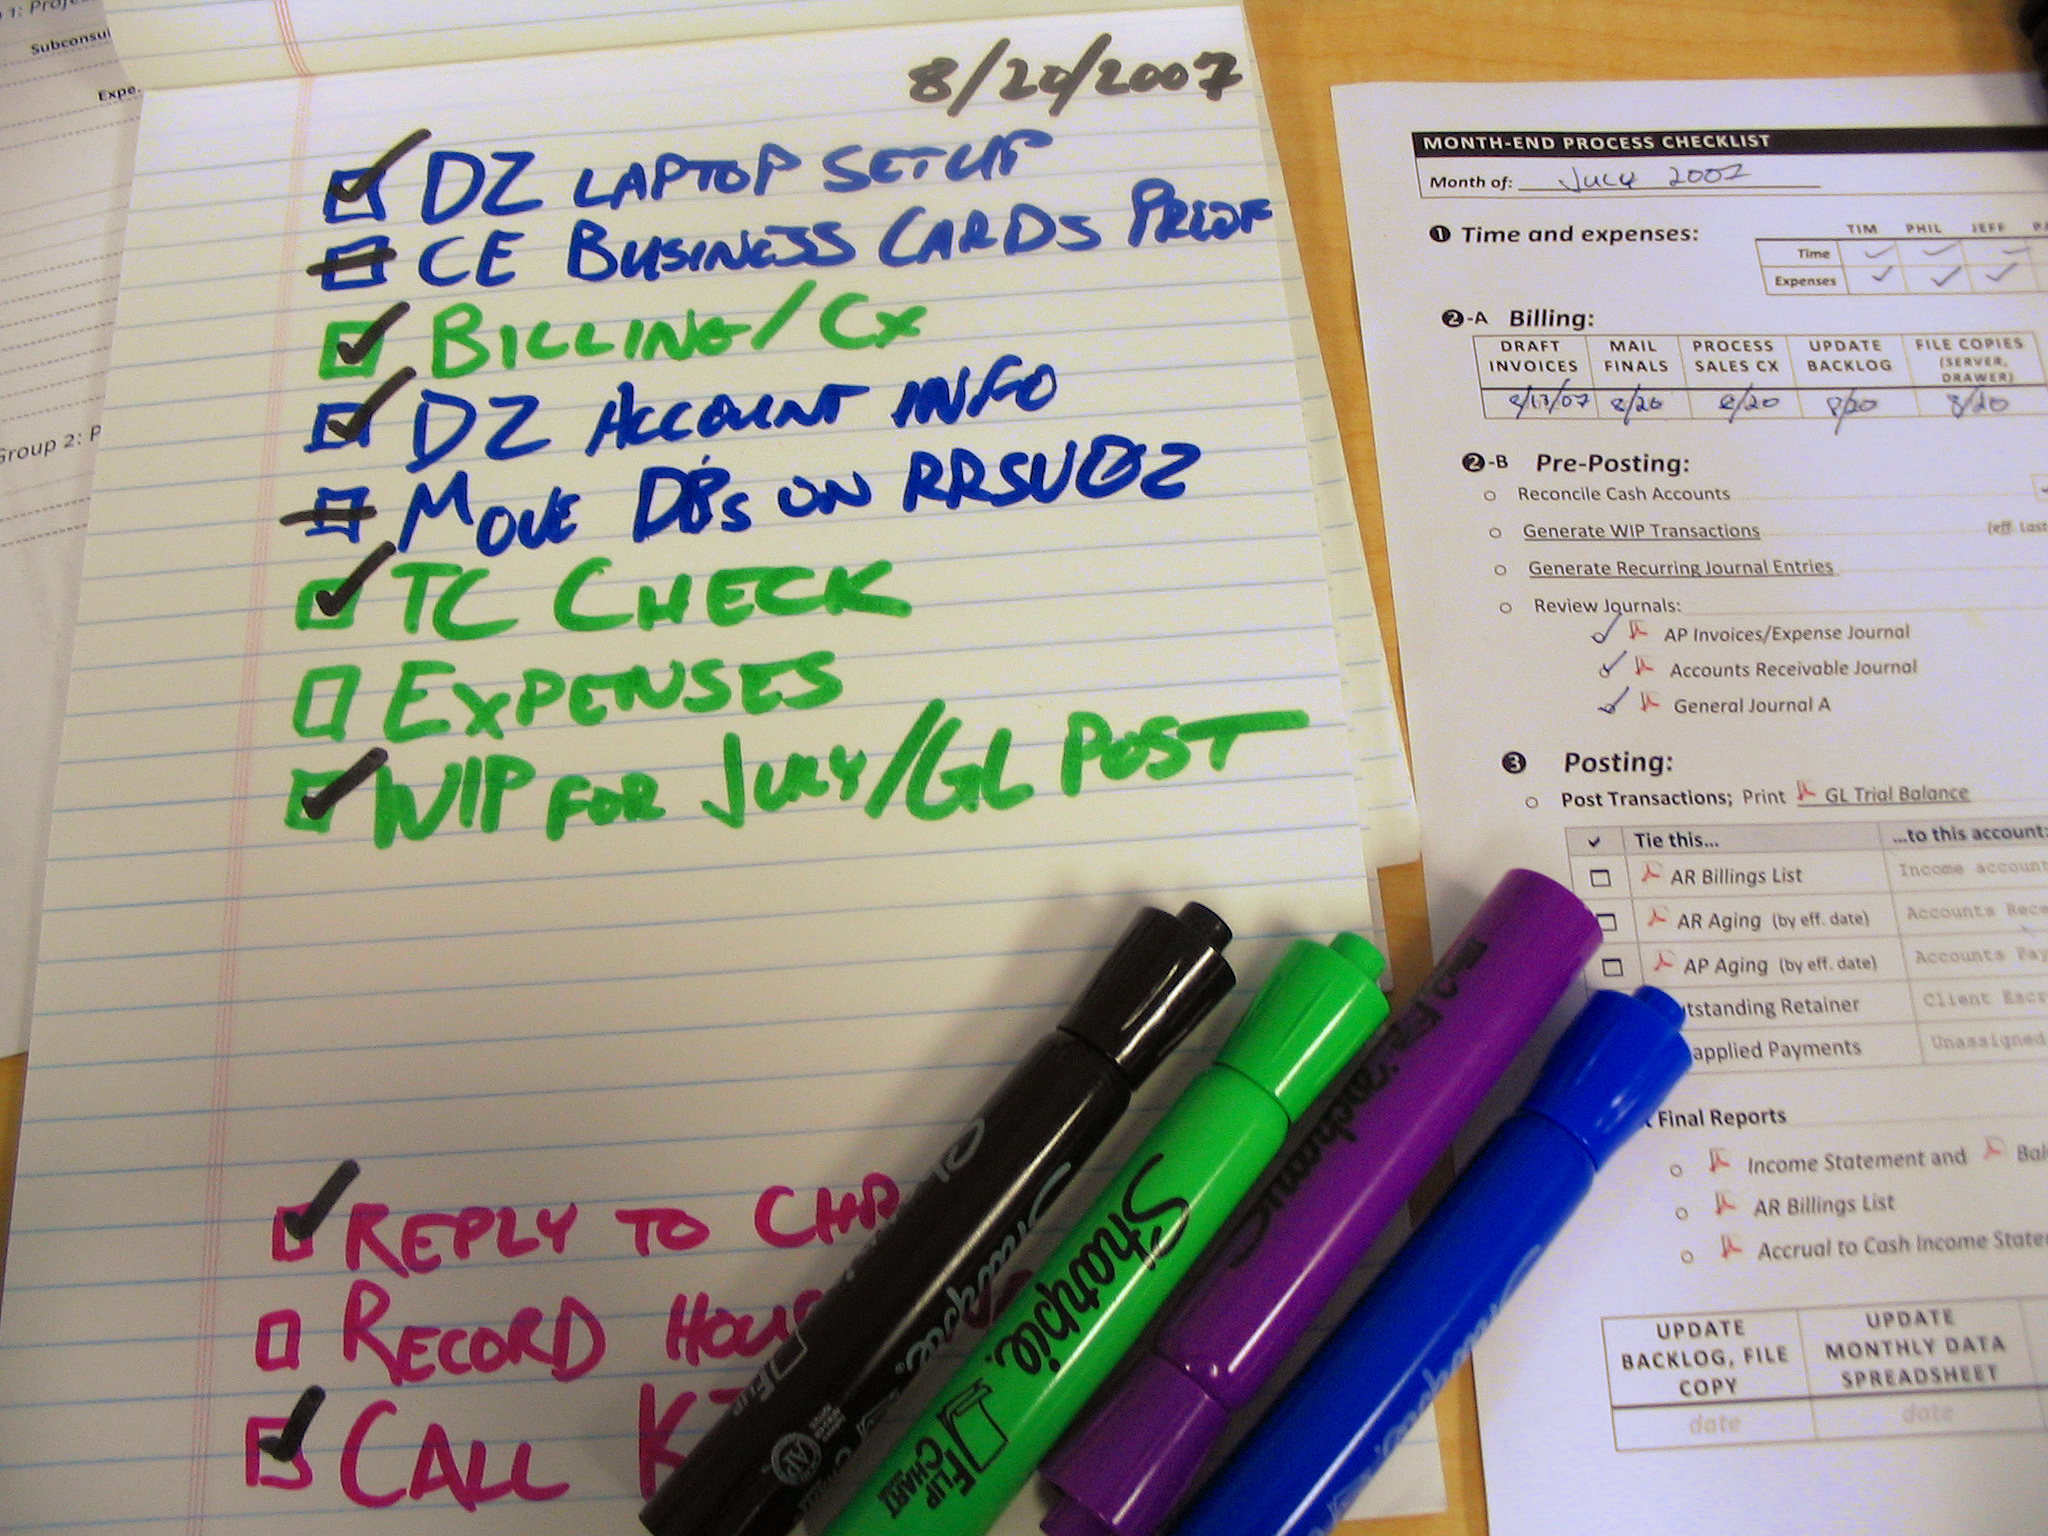 1: Projec
Subconsul
Expe.
Group 2: P
8/20/2007
DZ LAPTOP SETUP
CE BUSINESS CARDS PROOF
BILLING/CX
DZ ACCOUNT INFO
MOVE DBs ON RRSV02
TC CHECK
EXPENSES
WIP FOR JULY/GL POST
REPLY TO CHR
RECORD HOU
CALL K
Sharpie
Sharpie.
FLIP
FLIP CHART
AP
MONTH-END PROCESS CHECKLIST
Month of: JULY 2007
1 Time and expenses:
TIM PHIL JEFF
Time
Expenses
2-A Billing:
DRAFT INVOICES MAIL FINALS PROCESS SALES CX UPDATE BACKLOG FILE COPIES (SERVER, DRAWER)
8/13/07 8/20 8/20 8/20 8/20
2-B Pre-Posting:
Reconcile Cash Accounts
Generate WIP Transactions (eff. last
Generate Recurring Journal Entries
Review Journals:
AP Invoices/Expense Journal
Accounts Receivable Journal
General Journal A
3 Posting:
Post Transactions; Print GL Trial Balance
Tie this... ...to this account:
AR Billings List Income account
AR Aging (by eff. date) Accounts Rece
AP Aging (by eff. date) Accounts Pay
tstanding Retainer Client Escr
applied Payments Unassigned
t Final Reports
Income Statement and Bal
AR Billings List
Accrual to Cash Income State
UPDATE BACKLOG, FILE COPY UPDATE MONTHLY DATA SPREADSHEET
date date